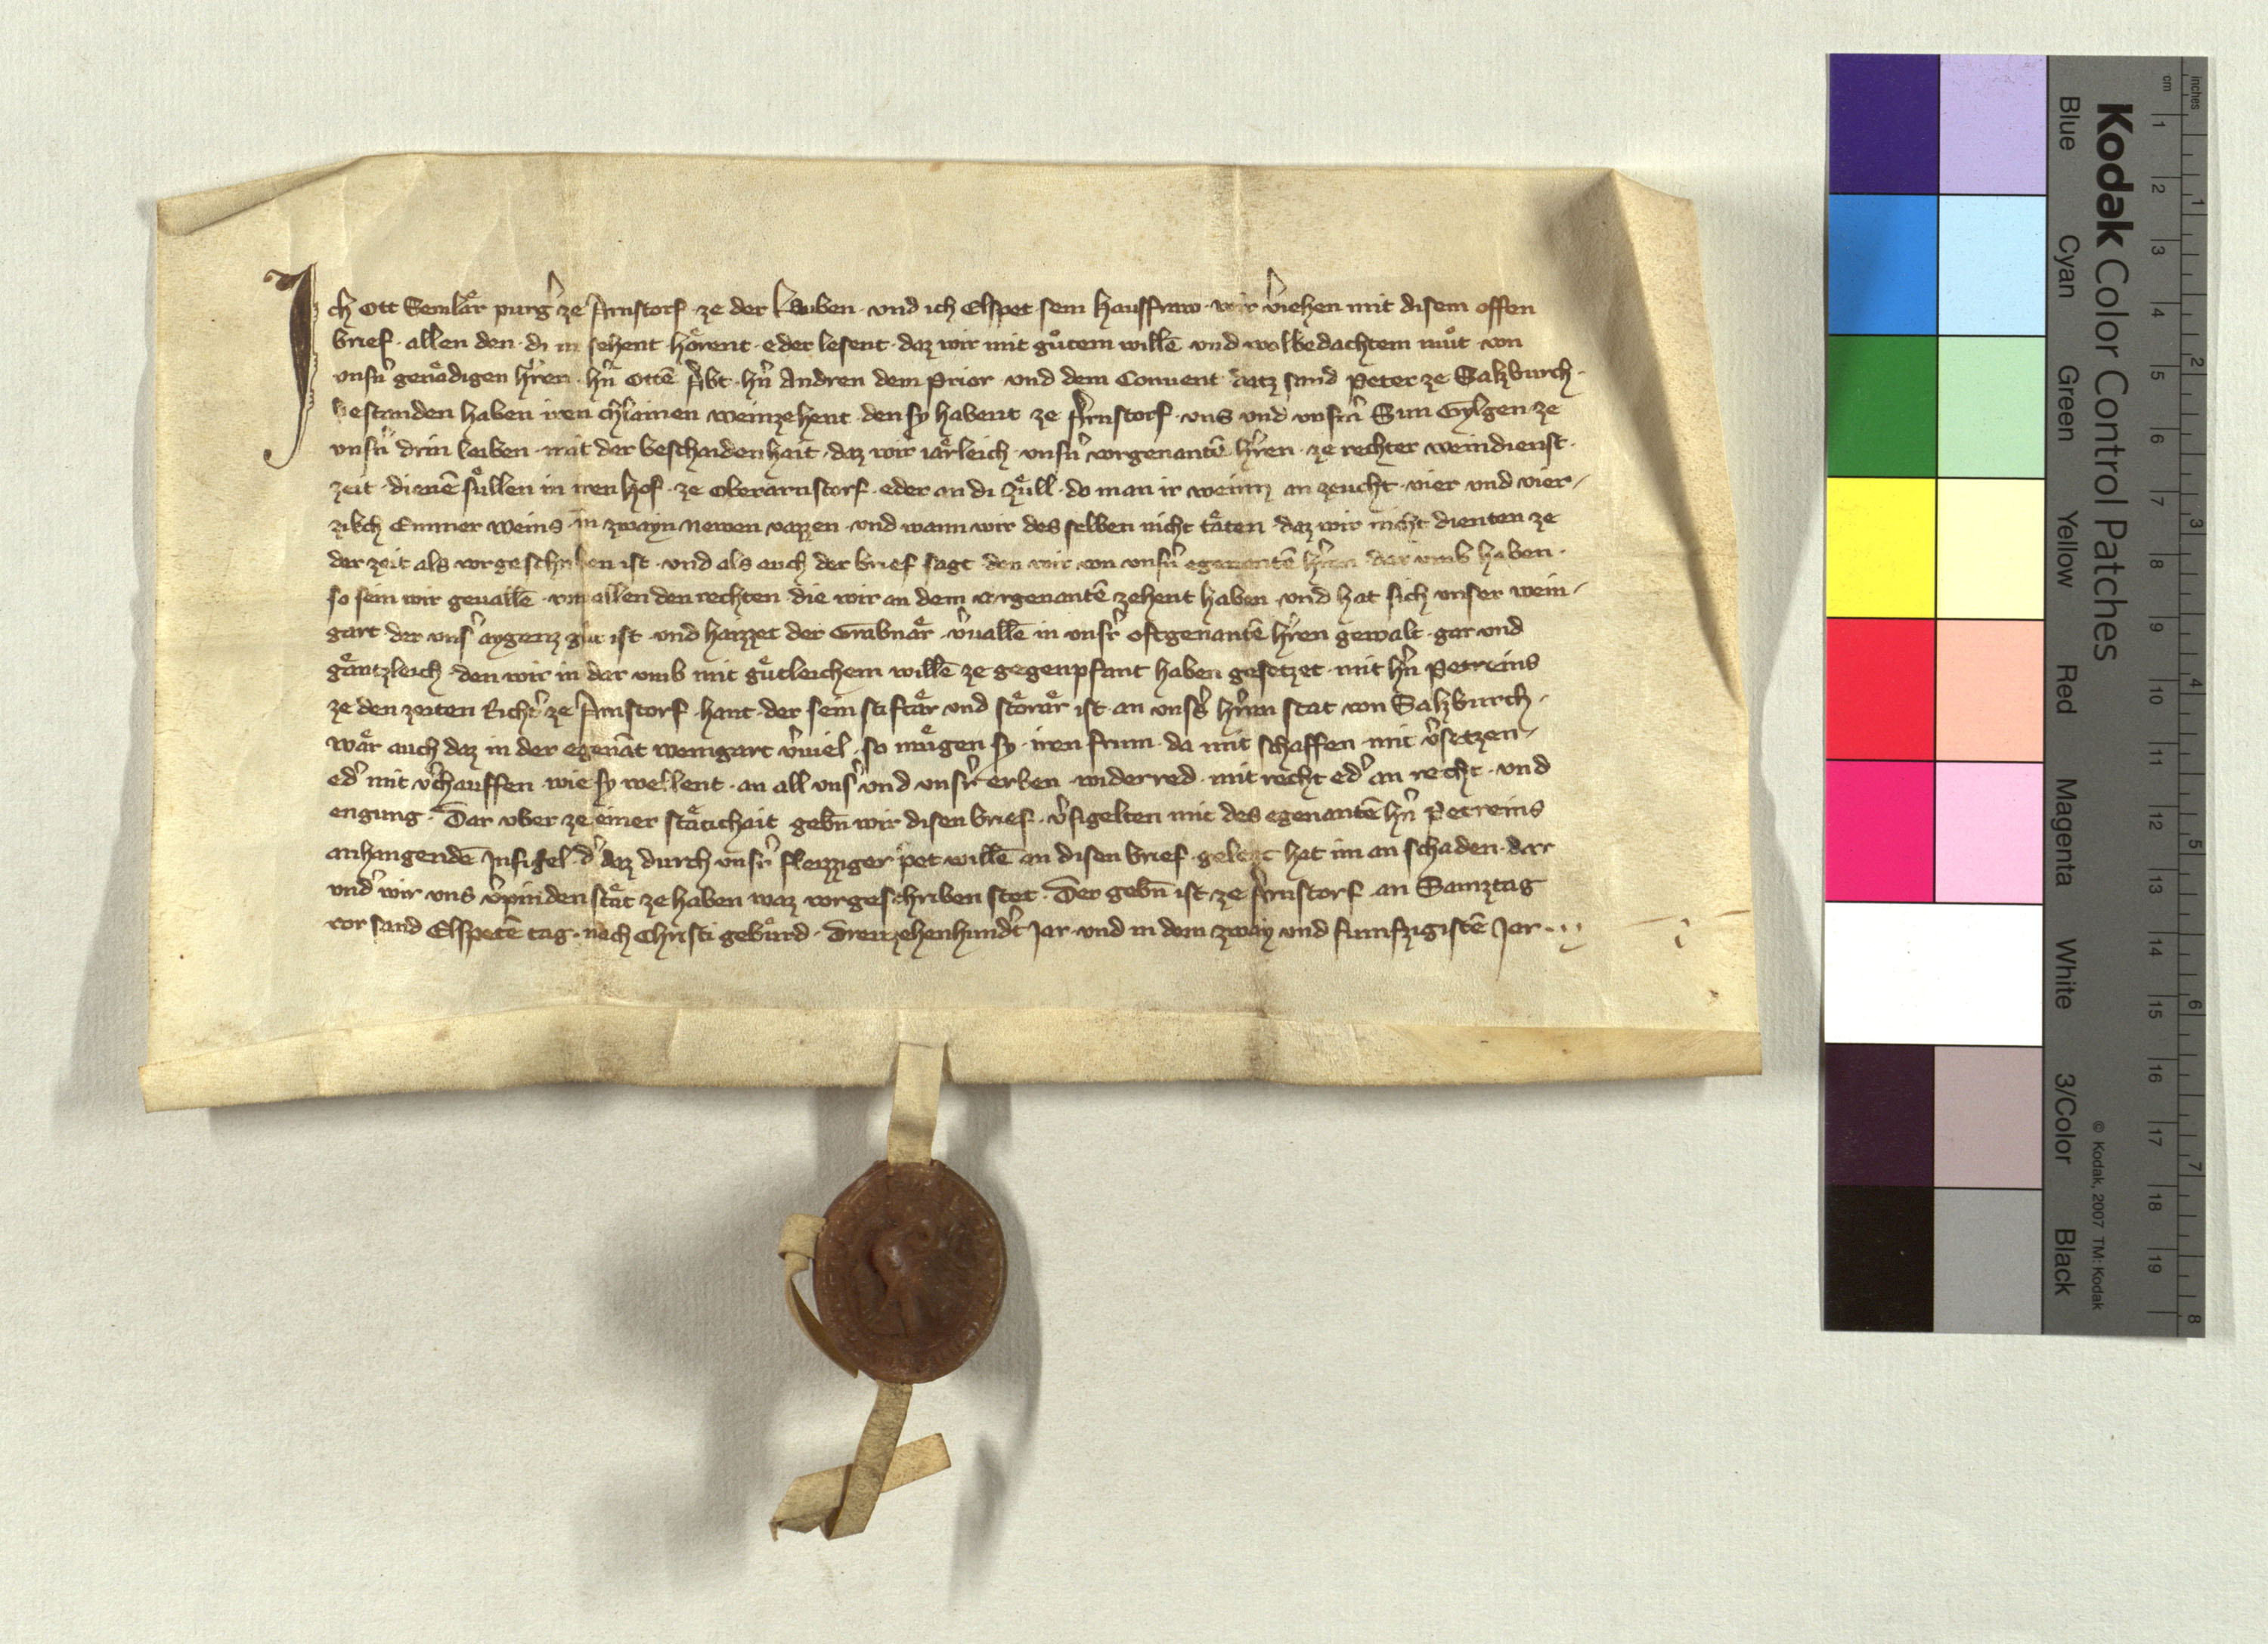 Ich Ott Semlaͤr purg̾ ze Arnstorf · ze der Lauben · vnd ich Elspet sein hausfraw · wir v̾iehen mit disem offen
brief · allen den · di in sehent · hoͤrent · eder lesent · daz wir mit guͤtem willē · vnd wolbedachtem muͦt · von
vnsn̾ genaͤdigen hr̾ren · hn̾ Ottē Abt · hn̾ Andren dem Prior · vnd dem Conuent datz sand Peter ze Salzburch ·
bestanden haben iren chlainen weinzehent · den sy habent ze Arnstorf · vns vnd vnsm̾ Sun Gylgen ze
vnsn̾ drin leiben · mit der beschaidenhait · daz wir iaͤrleich · vnsn̾ vorgenantē hr̾ren · ze rechter weindienst ·
zeit · dienē suͤllen in iren hof · ze Oberarnstorf · eder an di Zuͤll · do man ir wein an zeucht · vier vnd vier /
zikch Emmer weins · in zwayn newen vazzen · vnd wann wir des selben nicht taͤten · daz wir nicht dienten ze
der zeit als vorgeschriben ist · vnd als auch der brief sagt den wir von vnsn̾ egenantē hr̾ren dar vmb haben ·
so sein wir geuallē · von allen den rechten · die wir an dem vorgenantē zehent haben · vnd hat sich vnser wein /
gart der vns̾ aygenz guͦt ist · vnd haizzet der Grabnaͤr · v̾uallē in vnsr̾ oftgenantē hr̾ren gewalt · gar vnd
gaͤntzleich · den wir in dar vmb mit guͤtleichem willē ze gegenpfant haben gesetzet · mit hn̾ Petreins
ze den zeiten Richt̾ ze Arnstorf · hant · der sein stiftaͤr vnd stoͤraͤr ist · an vnsr̾ hr̾ren stat von Salzburch ·
waͤr auch daz in der egenāt weingart v̾uiel · so muͤgen sy · iren frum · da mit schaffen · mit v̾setzen /
ed̾ mit v̾chauffen · wie sy wellent · an all vns̾ vnd vnsr̾ erben · widerred · mit recht ed̾ an recht · vnd
engung · Dar vber ze einer staͤtichait gebn̄ wir disen brief · v̾sigelten mit des egenantē hn̾ Petreins
anhangendē Insigel · d̾ daz durch vnsr̾ fleizziger pet willē an disen brief · gelegt hat im an schaden · dar
vnd̾ wir vns v̾pinden staͤt ze haben waz vorgeschriben stet · Der gebn̄ ist ze Arnstorf · an Samztag
vor sand Elspetē tag · nach Christi gebuͤrd · Dreuzehenhund̾t Jar · vnd in dem zway vnd funfzigistē Jar ·
Kodak Color Control Patches
Blue Cyan Green Yellow Red Magenta White 3/Color Black
© Kodak, 2007 TM: Kodak
inches 1 2 3 4 5 6 7 8
cm 1 2 3 4 5 6 7 8 9 10 11 12 13 14 15 16 17 18 19